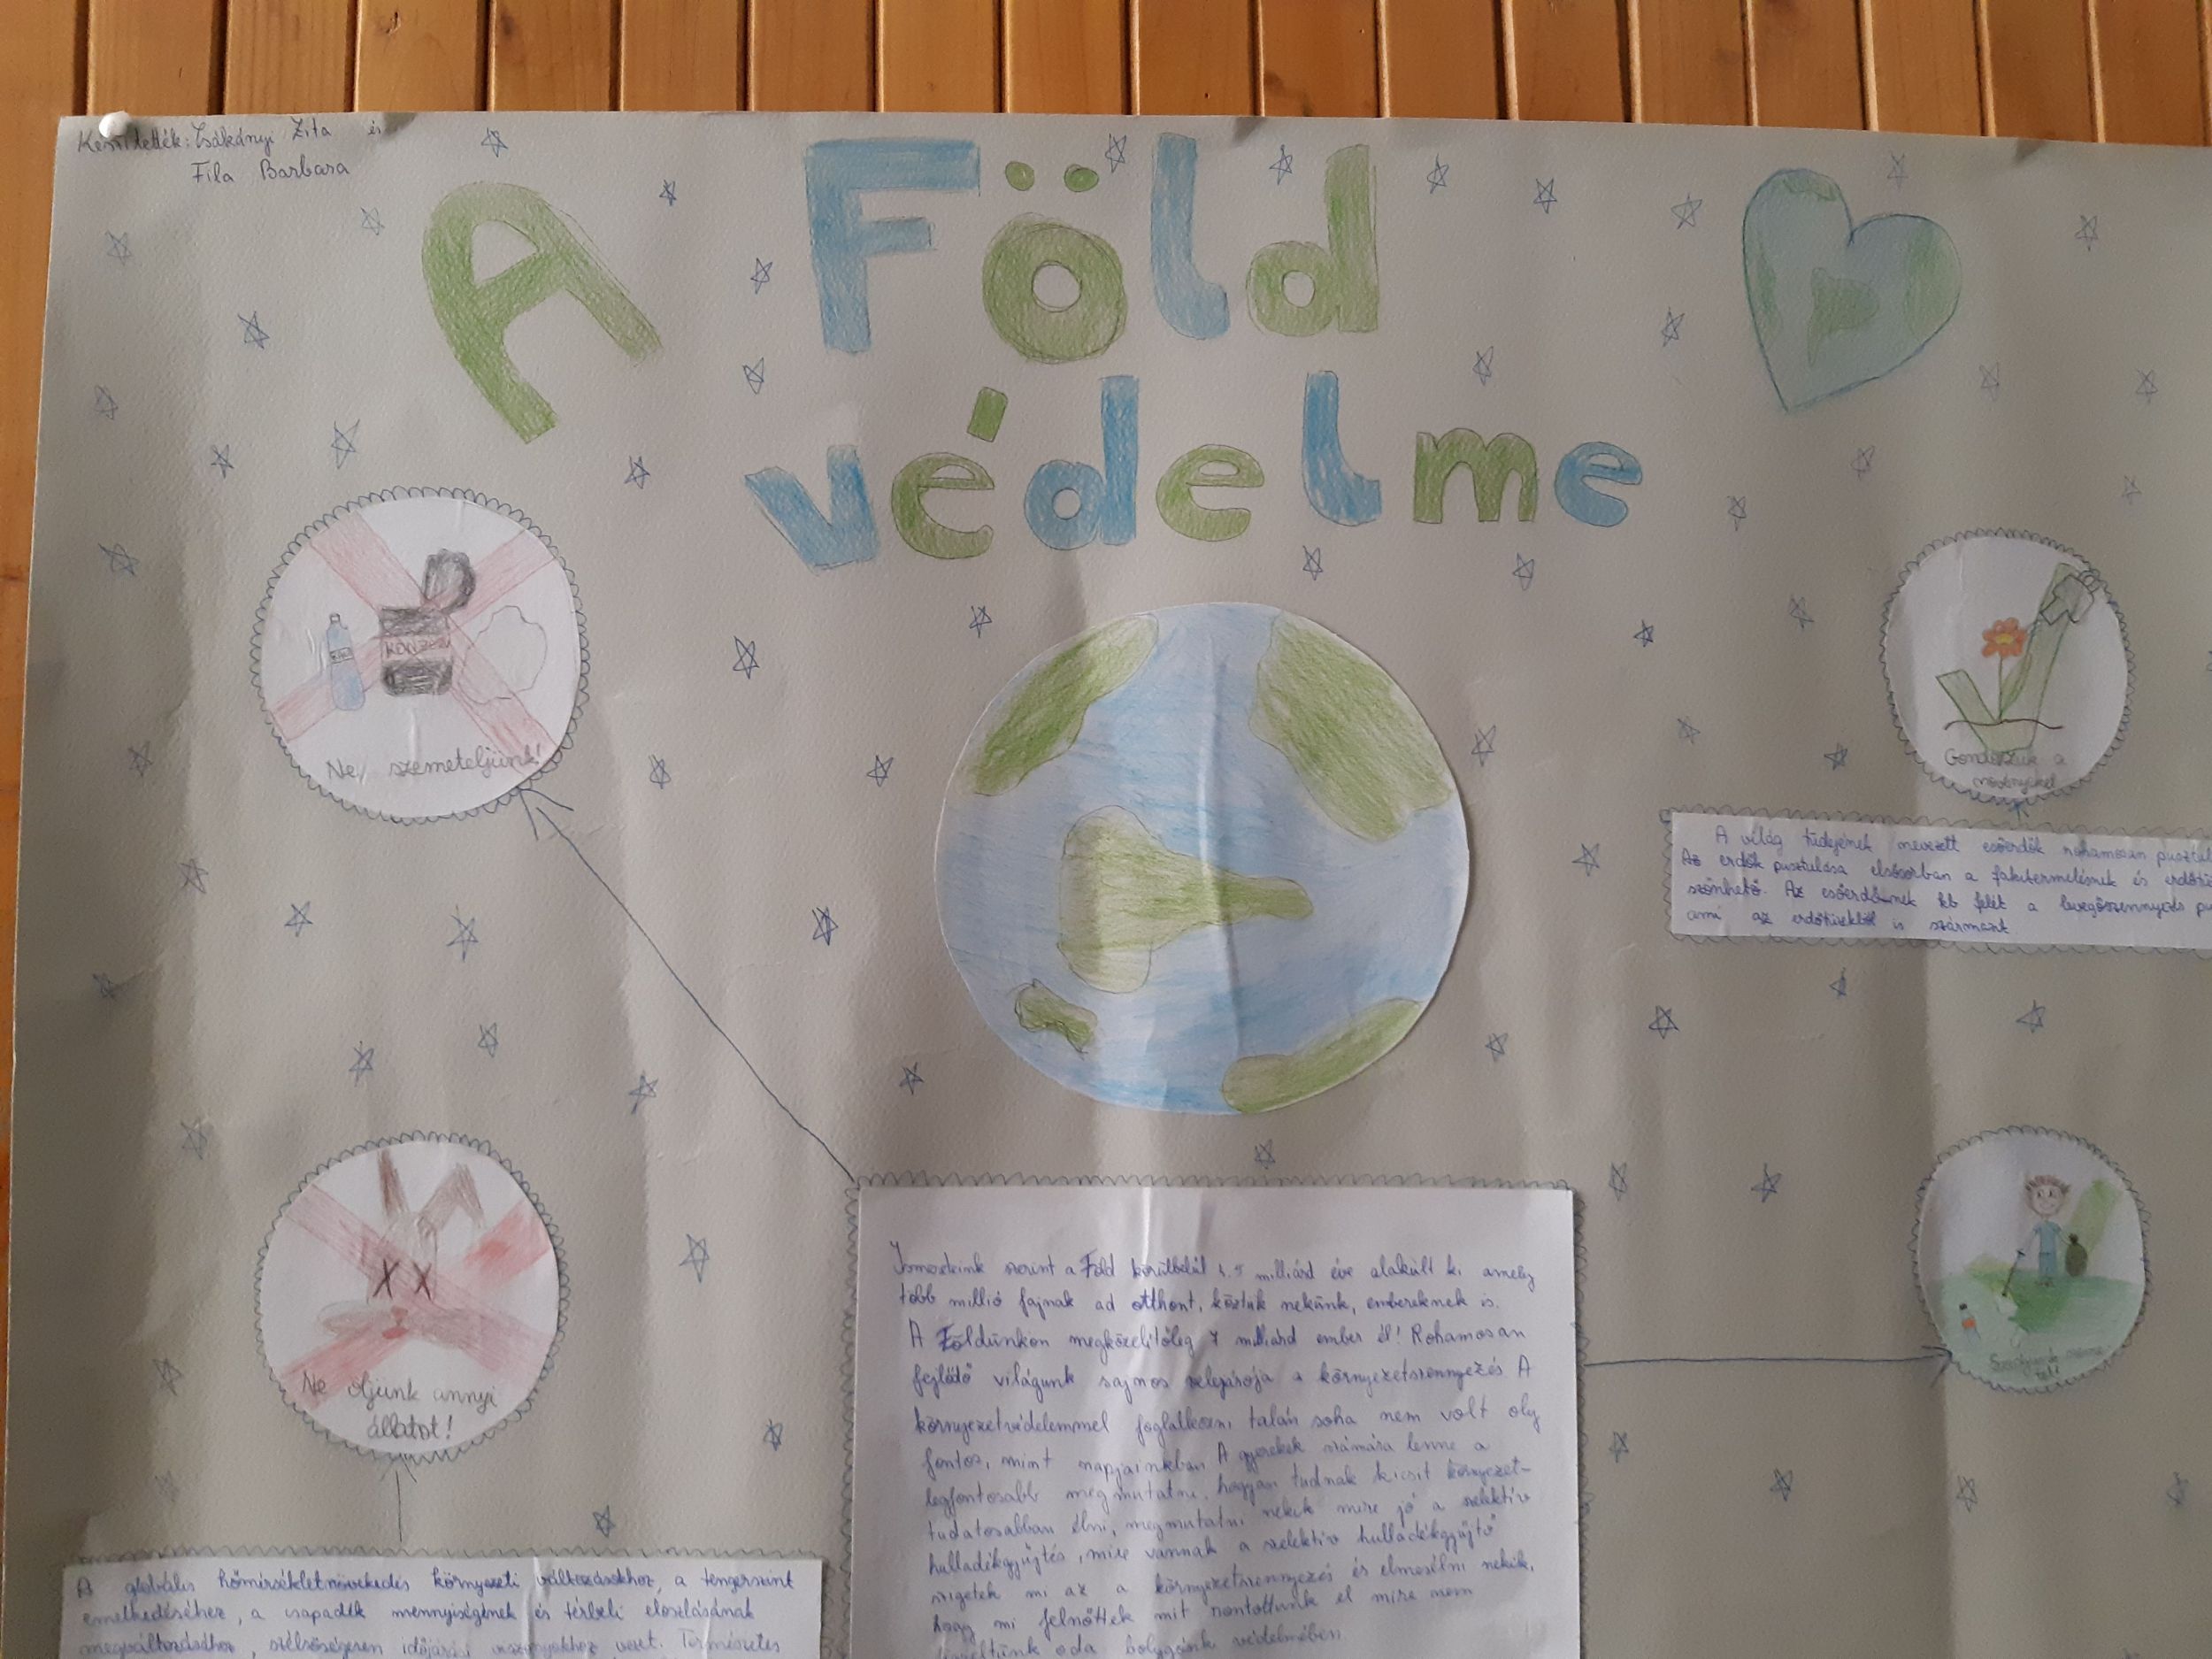 Készítették: Csákányi Zita és
Fila Barbara
A Föld
védelme
KONZERV
Ne szemeteljünk!
Gondozzuk a
növényeket
A világ tüdejének nevezett esőerdők rohamosan pusztul
Az erdők pusztulása elsősorban a fakitermelésnek és erdőtü
szönhető. Az esőerdőknek kb felét a levegőszennyezés pu
ami az erdőtüzektől is származt
Ne öljünk annyi
állatot!
Ismereteink szerint a Föld körülbelül 4.5 milliárd éve alakült ki amely
több millió fajnak ad otthont, köztük nekünk, embereknek is.
A Földünkon megközelitőleg 7 milliárd ember él! Rohamosan
fejlődő világunk sajnos velejárója a környezetszennyezés A
környezetvédelemmel foglalkozni talán soha nem volt oly
fontos, mint napjainkban A gyerekek számára lenne a
legfontosabb megmutatni, hogyan tudnak kicsit környezet-
tudatosabban élni, megmutatni nekik mire jó a szelektiv
hulladékgyűjtés, mire vannak a szelektiv hulladékgyűjtő
szigetek mi az a környezetszennyezés és elmesélni nekik,
hogy mi felnőttek mit rontottunk el mire nem
figyeltünk oda bolygónk védelmében
A globális hőmérsékletnövekedés környezeti változásokhoz, a tengerszint
emelkedéséhez, a csapadék mennyiségének és térbeli eloszlásának
megváltozásához, szélsőségesen időjárási viszonyokhoz vezet. Természetes